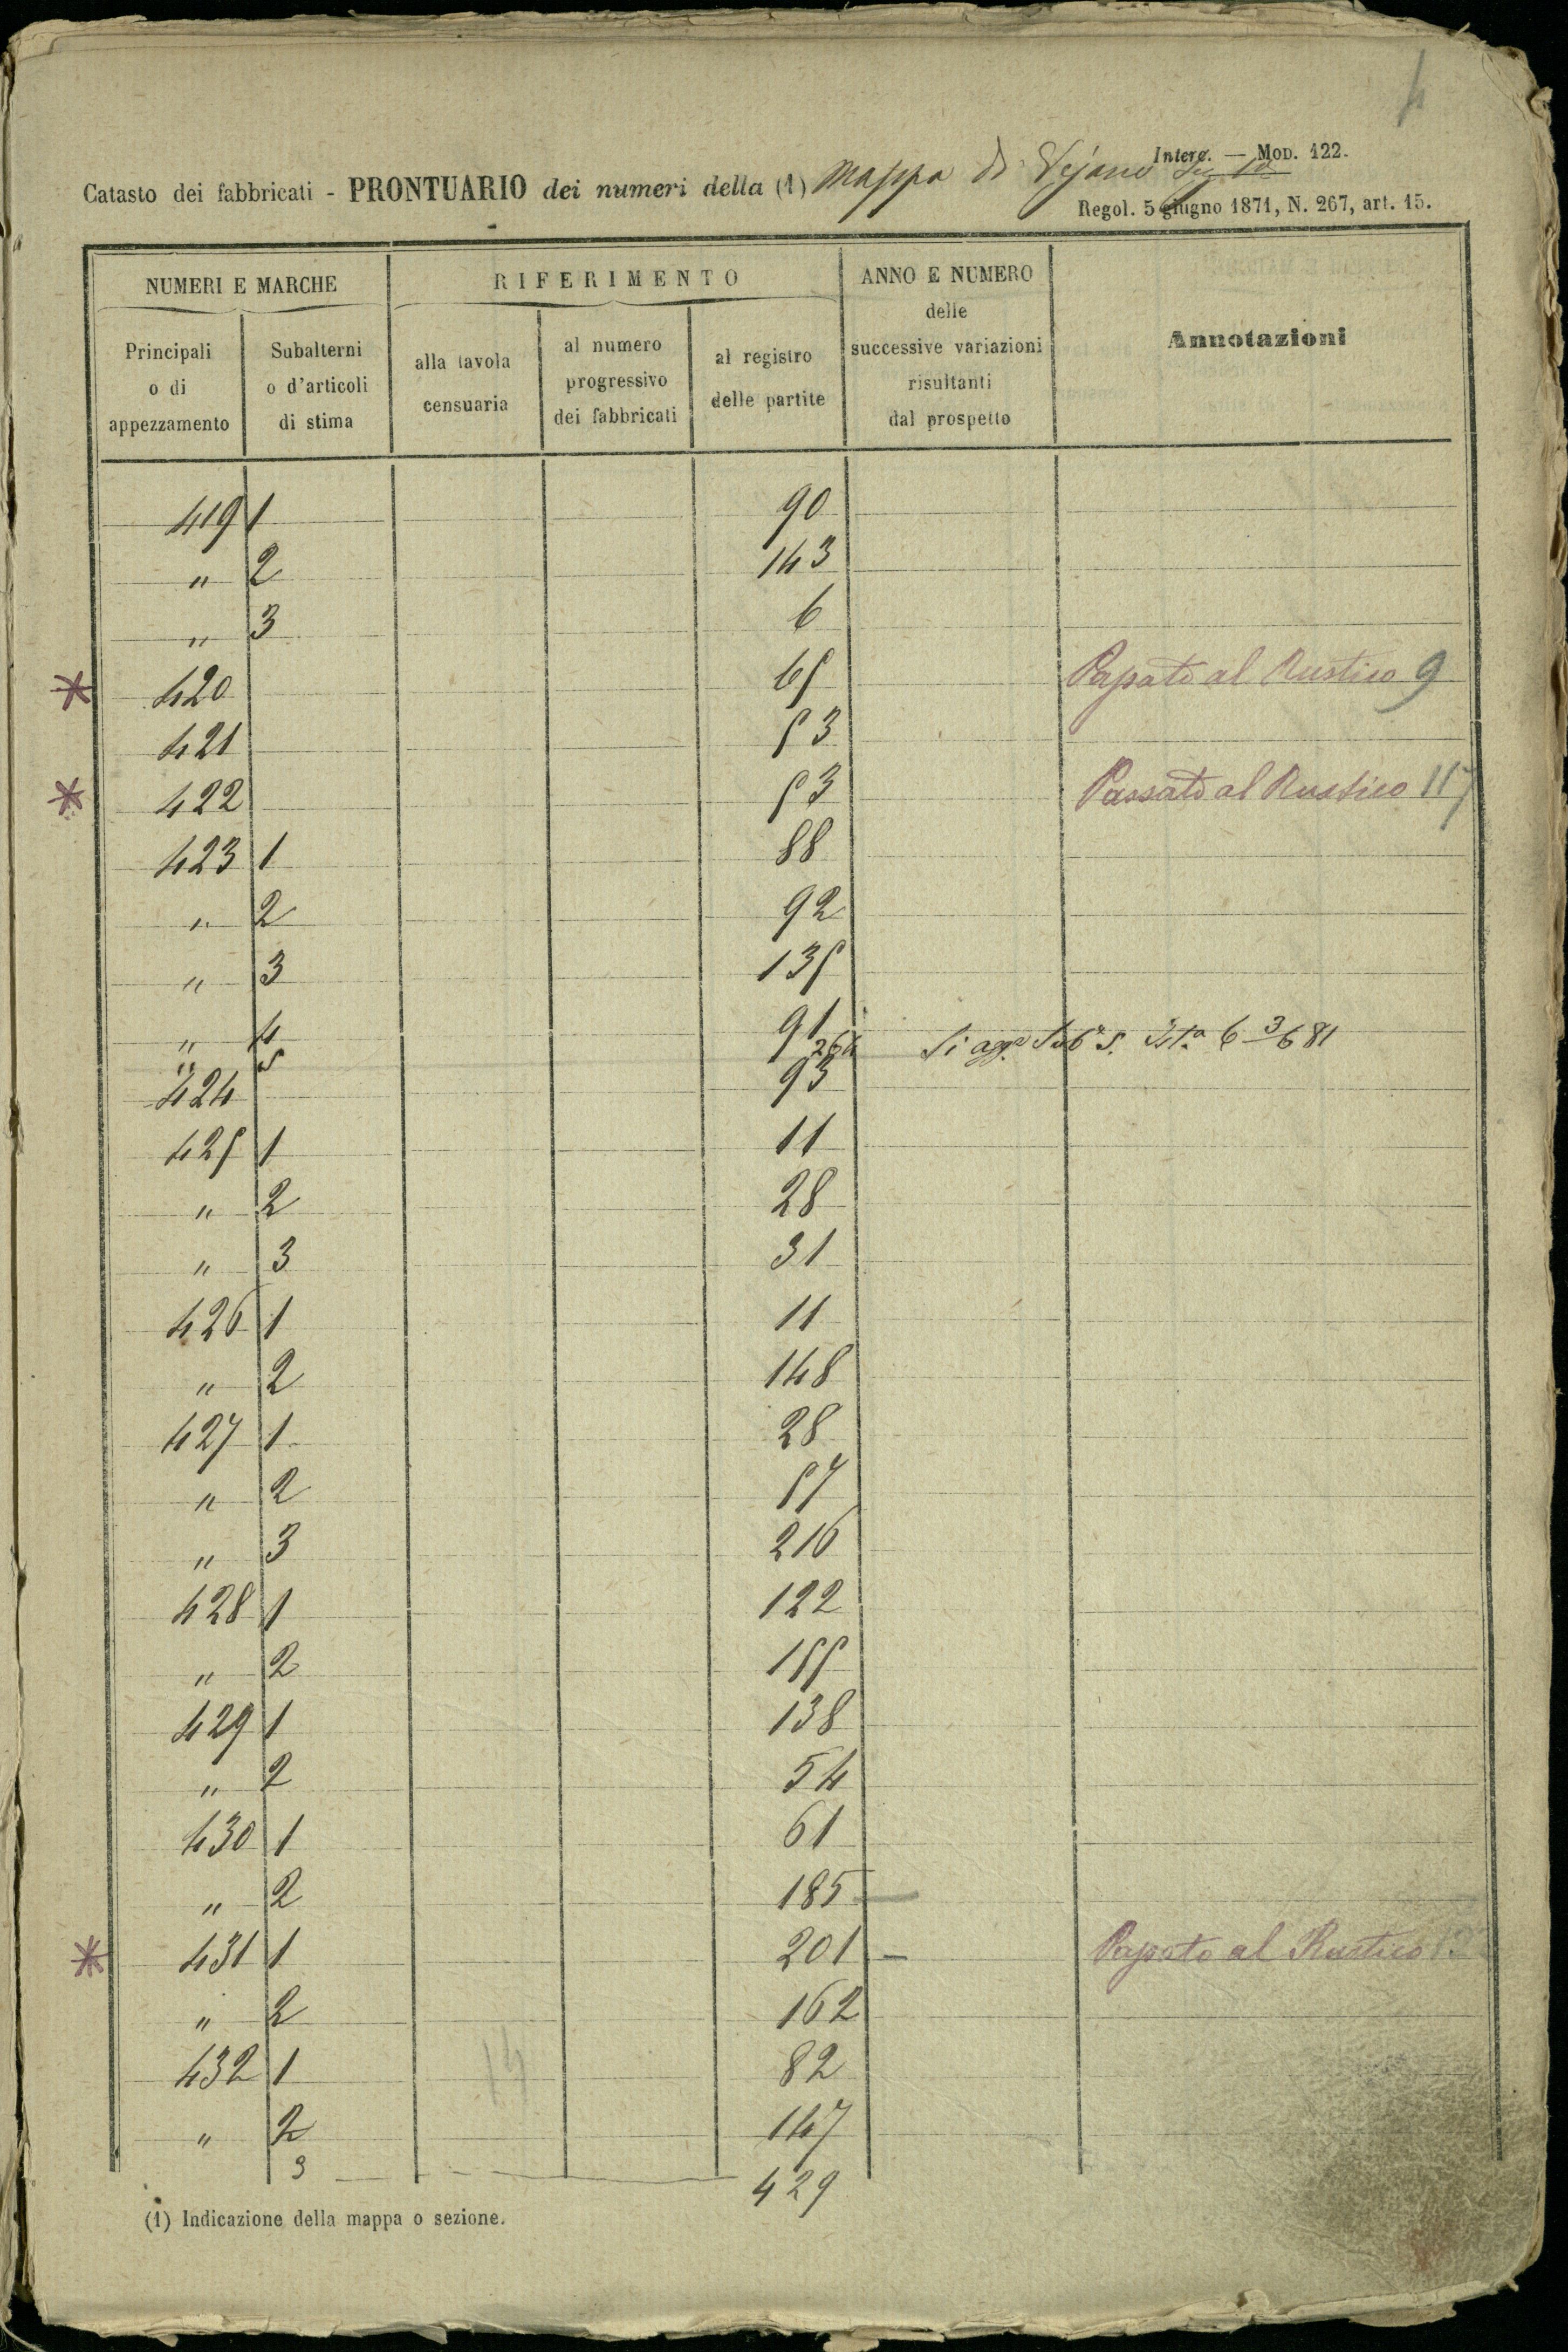 4
Interc. — Mod. 122.
Catasto dei fabbricati - PRONTUARIO dei numeri della (1) Mappa di Vejano
Regol. 5 giugno 1871, N. 267, art. 15.
NUMERI E MARCHE RIFERIMENTO ANNO E NUMERO delle successive variazioni risultanti dal prospetto Annotazioni
Principali o di appezzamento Subalterni o d'articoli di stima alla tavola censuaria al numero progressivo dei fabbricati al registro delle partite
419 1 90
" 2 143
" 3 6
* 420 65 Passato al Rustico 9
421 53
* 422 53 Passato al Rustico 117
423 1 88
" 2 92
" 3 135
" 4 91
" 5 264 Si agg.e Sub 5. 6 3/6 81
424 93
425 1 11
" 2 28
" 3 31
426 1 11
" 2 148
427 1 28
" 2 57
" 3 216
428 1 122
" 2 155
429 1 138
" 2 54
430 1 61
" 2 185 —
* 431 1 201 — Passato al Rustico
" 2 162
432 1 82
" 2 147
3 — 429
(1) Indicazione della mappa o sezione.